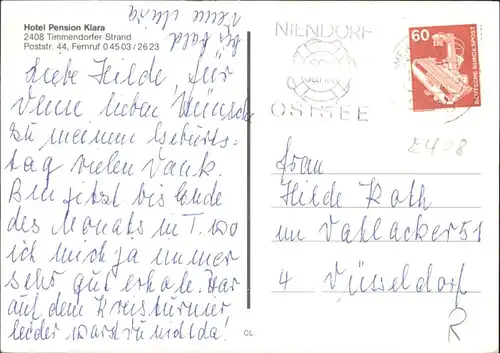 Hotel Pension Klara
2408 Timmendorfer Strand
Poststr. 44, Fernruf 0 45 03 / 26 23
Bis bald
Deine
Liebe Hilde, für
Deine lieben Wünsche
zu meinem Geburts-
tag vielen Dank.
Bin jetzt bis Ende
des Monats in T. wo
ich mich ja immer
sehr gut erhole. War
auf dem Kreisturnier,
leider warst Du nicht da!
NIENDORF
OSTSEE
60
DEUTSCHE BUNDESPOST
2408
Frau
Hilde Roth
im Vahlacker 51
4 Düsseldorf
R
CL